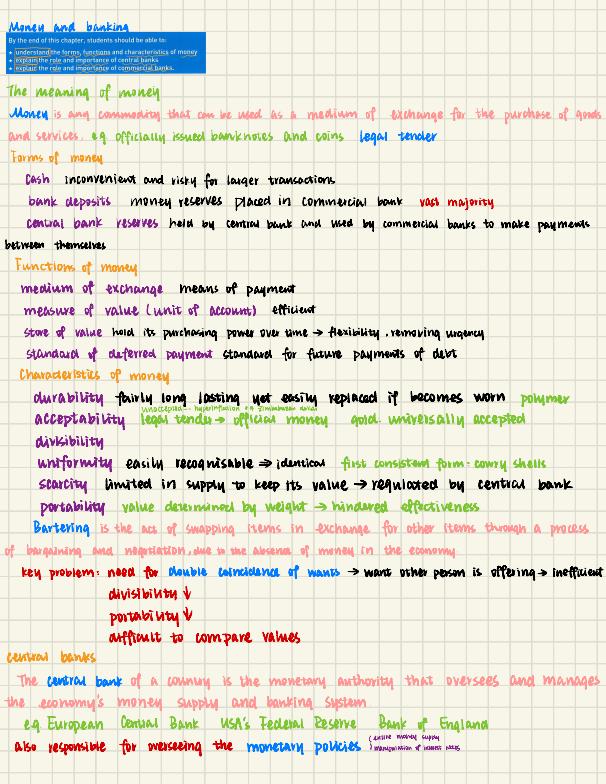 Money and banking
By the end of this chapter, students should be able to:
★ understand the forms, functions and characteristics of money
★ explain the role and importance of central banks
★ explain the role and importance of commercial banks.
The meaning of money
Money is any commodity that can be used as a medium of exchange for the purchase of goods
and services. eg officially issued banknotes and coins legal tender
Forms of money
Cash inconvenient and risky for larger transactions
bank deposits money reserves placed in commercial bank vast majority
central bank reserves held by central bank and used by commercial banks to make payments
between themselves
Functions of money
medium of exchange means of payment
measure of value (unit of account) efficient
store of value hold its purchasing power over time → flexibility, removing urgency
standard of deferred payment standard for future payments of debt
Characteristics of money
durability fairly long lasting yet easily replaced if becomes worn polymer
unaccepted -- hyperinflation eg Zimbabwean dollar
acceptability legal tender → official money gold. universally accepted
divisibility
uniformity easily recognisable ⇒ identical first consistent form: cowry shells
scarcity limited in supply to keep its value → regulated by central bank
portability value determined by weight → hindered effectiveness
Bartering is the act of swapping items in exchange for other items through a process
of bargaining and negotiation, due to the absence of money in the economy
key problem: need for double coincidence of wants → want other person is offering → inefficient
divisibility ↓
portability ↓
difficult to compare values
central banks
The central bank of a country is the monetary authority that oversees and manages
the economy's money supply and banking system
eg European Central Bank USA's Federal Reserve Bank of England
also responsible for overseeing the monetary policies
(entire money supply
manipulation of interest rates